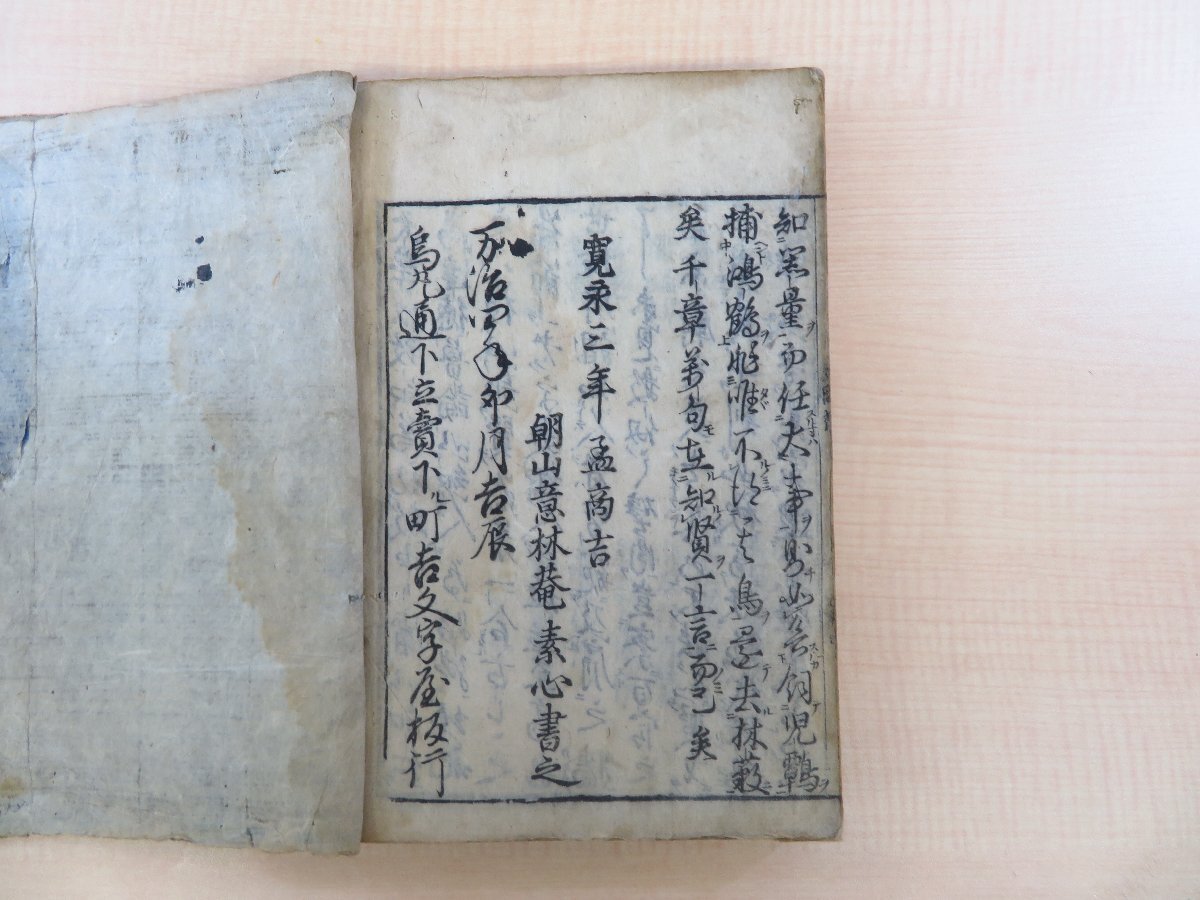 知器量而任大事則如養飼児鸇
捕鴻鶴唯不得其鳥還去林藪
矣千章万句在知賢一言而已矣
寛永三年孟商吉
朝山意林菴素心書之
万治四年卯月吉辰
烏丸通下立賣下ル町吉文字屋板行